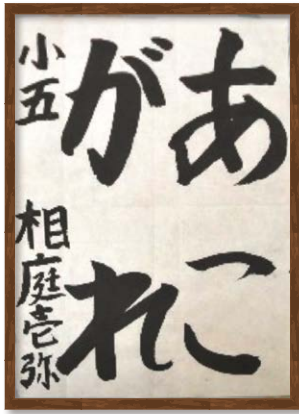 あこ
がれ
小五 相庭壱弥